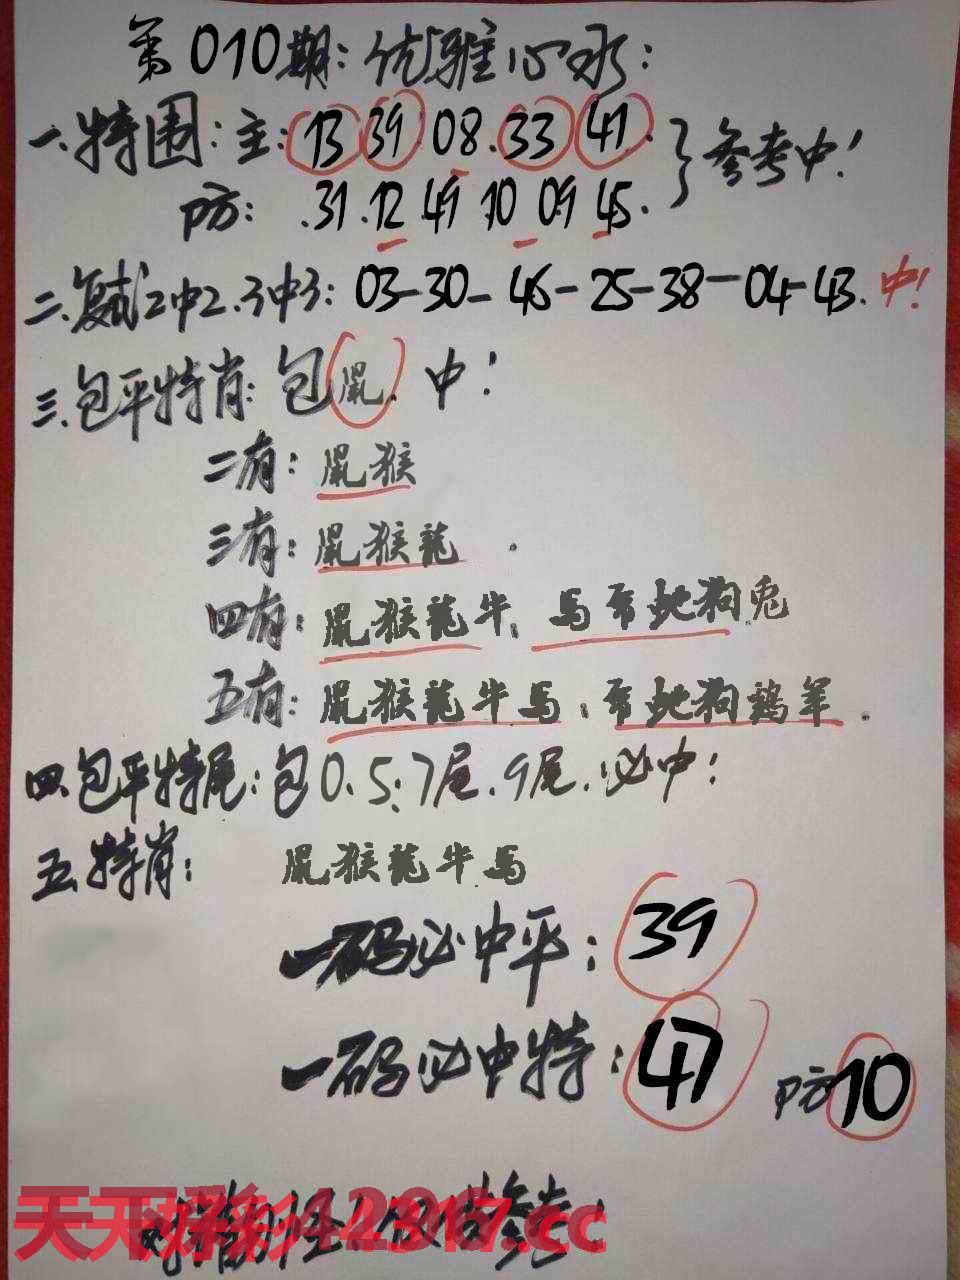 第010期：优雅心水：
一.特围：主：13 39 08.33 41.
防：.31.12.49 10 09 45.
参考中！
二.复试2中2.3中3：03-30-46-25-38-04-43.中！
三.包平特肖：包鼠.中！
二有：鼠猴
三有：鼠猴龍.
四有：鼠猴龍牛.馬 蛇狗兔
五有：鼠猴龍牛馬. 蛇狗鷄羊.
四.包平特尾：包0.5.7尾.9尾.必中！
五.特肖：鼠猴龍牛馬
一码必中平：39
一码必中特：47 防10
天下彩.cc